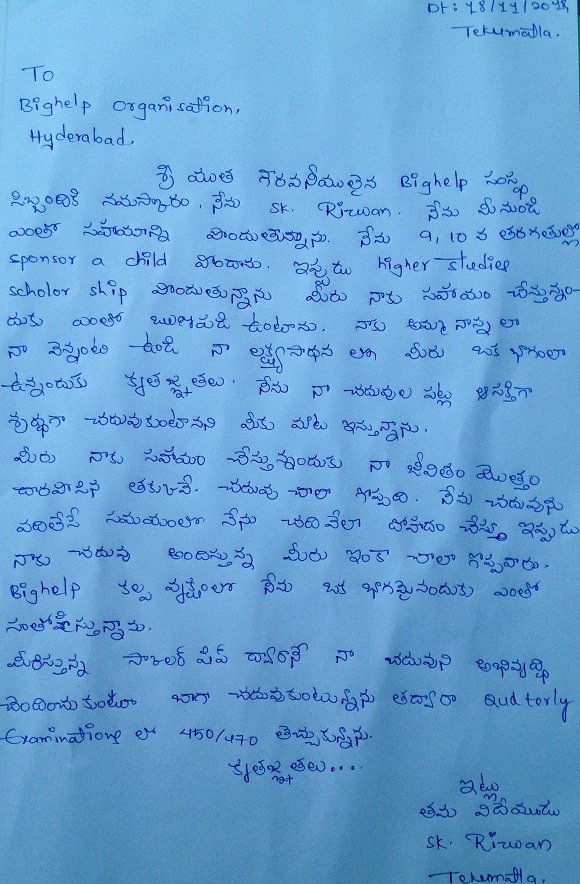 Dt: 18/11/2018,
Tekumatla.
To
Bighelp Organisation,
Hyderabad.
శ్రీ యుత గౌరవనీయులైన Bighelp సంస్థ
సిబ్బందికి నమస్కారం. నేను SK. Rizwan. నేను మీనుండి
ఎంతో సహాయాన్ని పొందుతున్నాను. నేను 9, 10 వ తరగతుల్లో
sponsor a child పొందాను. ఇప్పుడు Higher studies
scholor ship పొందుతున్నాను మీరు నాకు సహాయం చేస్తున్నం-
దుకు ఎంతో ఋణపడి ఉంటాను. నాకు అమ్మ నాన్న లా
నా వెన్నంటి ఉండి నా లక్ష్యసాధన లో మీరు ఒక భాగంలా
ఉన్నందుకు కృతజ్ఞతలు. నేను నా చదువుల పట్ల ఆసక్తిగా
శ్రద్ధగా చదువుకుంటానని మీకు మాట ఇస్తున్నాను.
మీరు నాకు సహాయం చేస్తున్నందుకు నా జీవితం మొత్తం
దారవోసిన తక్కువే. చదువు చాలా గొప్పది. నేను చదువును
వదిలేసే సమయంలో నేను చదివేలా దోహదం చేస్తూ ఇప్పుడు
నాకు చదువు అందిస్తున్న మీరు ఇంకా చాలా గొప్పవారు.
Bighelp కల్ప వృక్షంలో నేను ఒక భాగమైనందుకు ఎంతో
సంతోషిస్తున్నాను.
మీరిస్తున్న స్కాలర్ షిప్ ద్వారానే నా చదువుని అభివృద్ధి
చెందించుకుంటూ బాగా చదువుకుంటున్నాను తద్వారా Quaterly
Examinations లో 450/470 తెచ్చుకున్నాను.
కృతజ్ఞతలు....
ఇట్లు
తమ విదేయుడు
SK. Rizwan
Tekumatla.